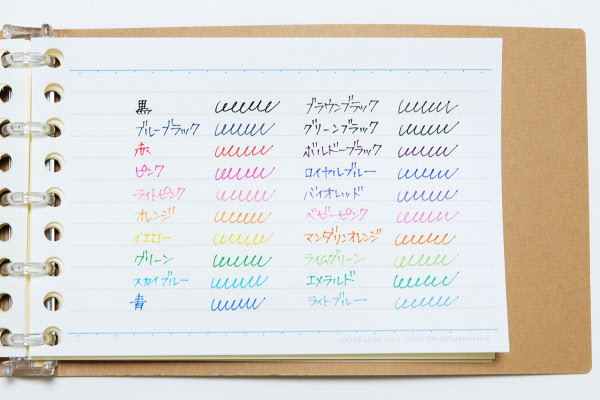 黒
ブルーブラック
赤
ピンク
ライトピンク
オレンジ
イエロー
グリーン
スカイブルー
青
ブラウンブラック
グリーンブラック
ボルドーブラック
ロイヤルブルー
バイオレッド
ベビーピンク
マンダリンオレンジ
ライムグリーン
エメラルド
ライトブルー
LOOSE LEAF marumans